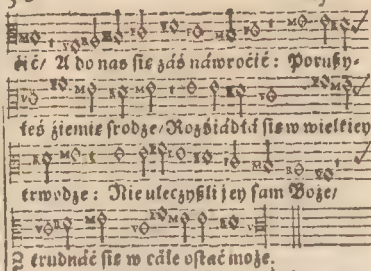 ćić/ A do nas się záś náwroćić: Poruszy-
łeś źiemię srodze/ Rozśiádłá się w wielkiey
trwodze: Nie uleczyszli jey sam Boże/
trudnáć się w cále ostáć może.